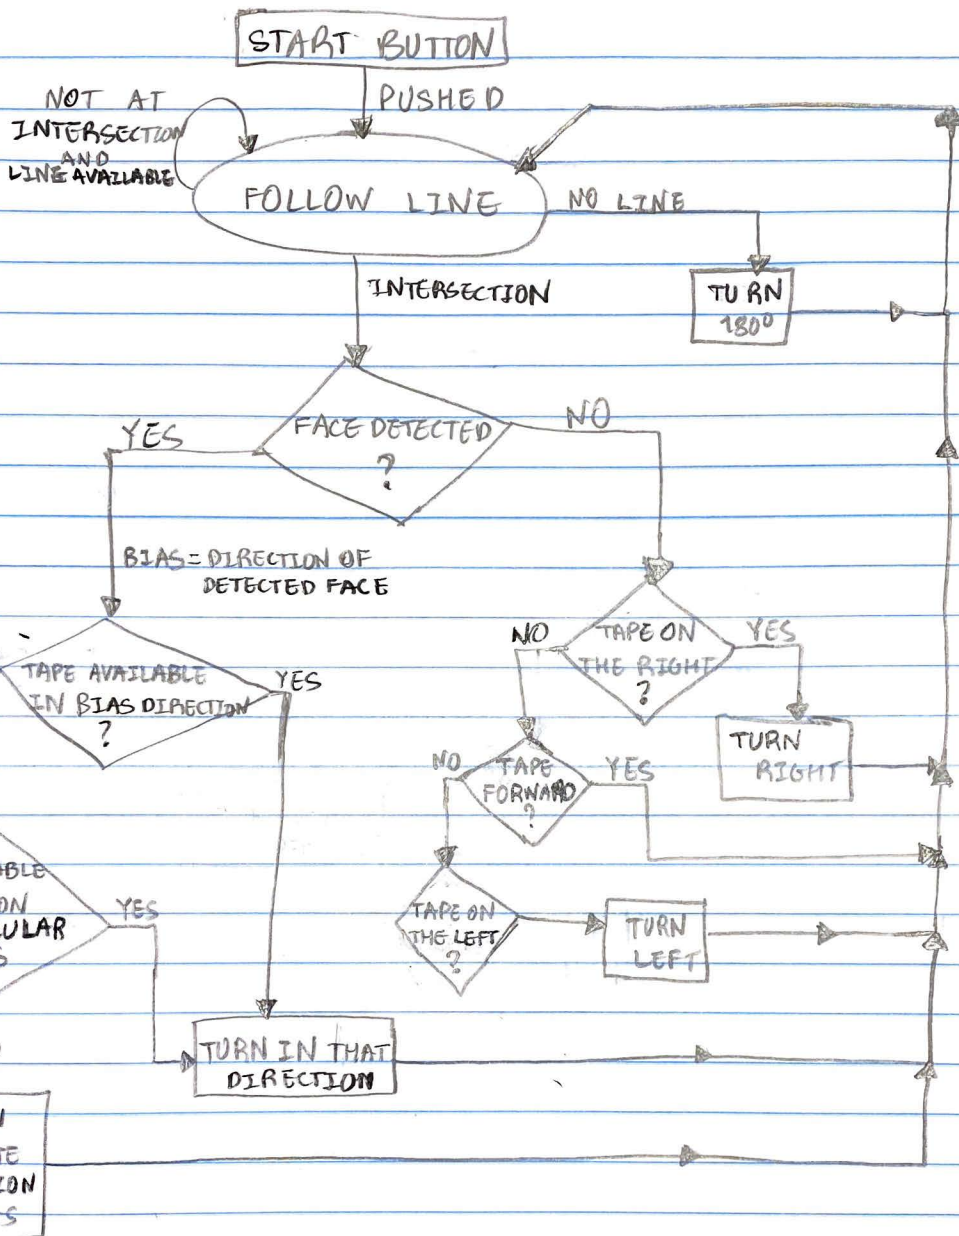 START BUTTON
PUSHED
NOT AT
INTERSECTION
AND
LINE AVAILABLE
FOLLOW LINE
NO LINE
TURN
180°
INTERSECTION
FACE DETECTED
?
YES
NO
BIAS = DIRECTION OF
DETECTED FACE
TAPE AVAILABLE
IN BIAS DIRECTION
?
YES
TAPE ON
THE RIGHT
?
NO
YES
TURN
RIGHT
TAPE
FORWARD
?
NO
YES
TAPE ON
THE LEFT
?
TURN
LEFT
YES
TURN IN THAT
DIRECTION